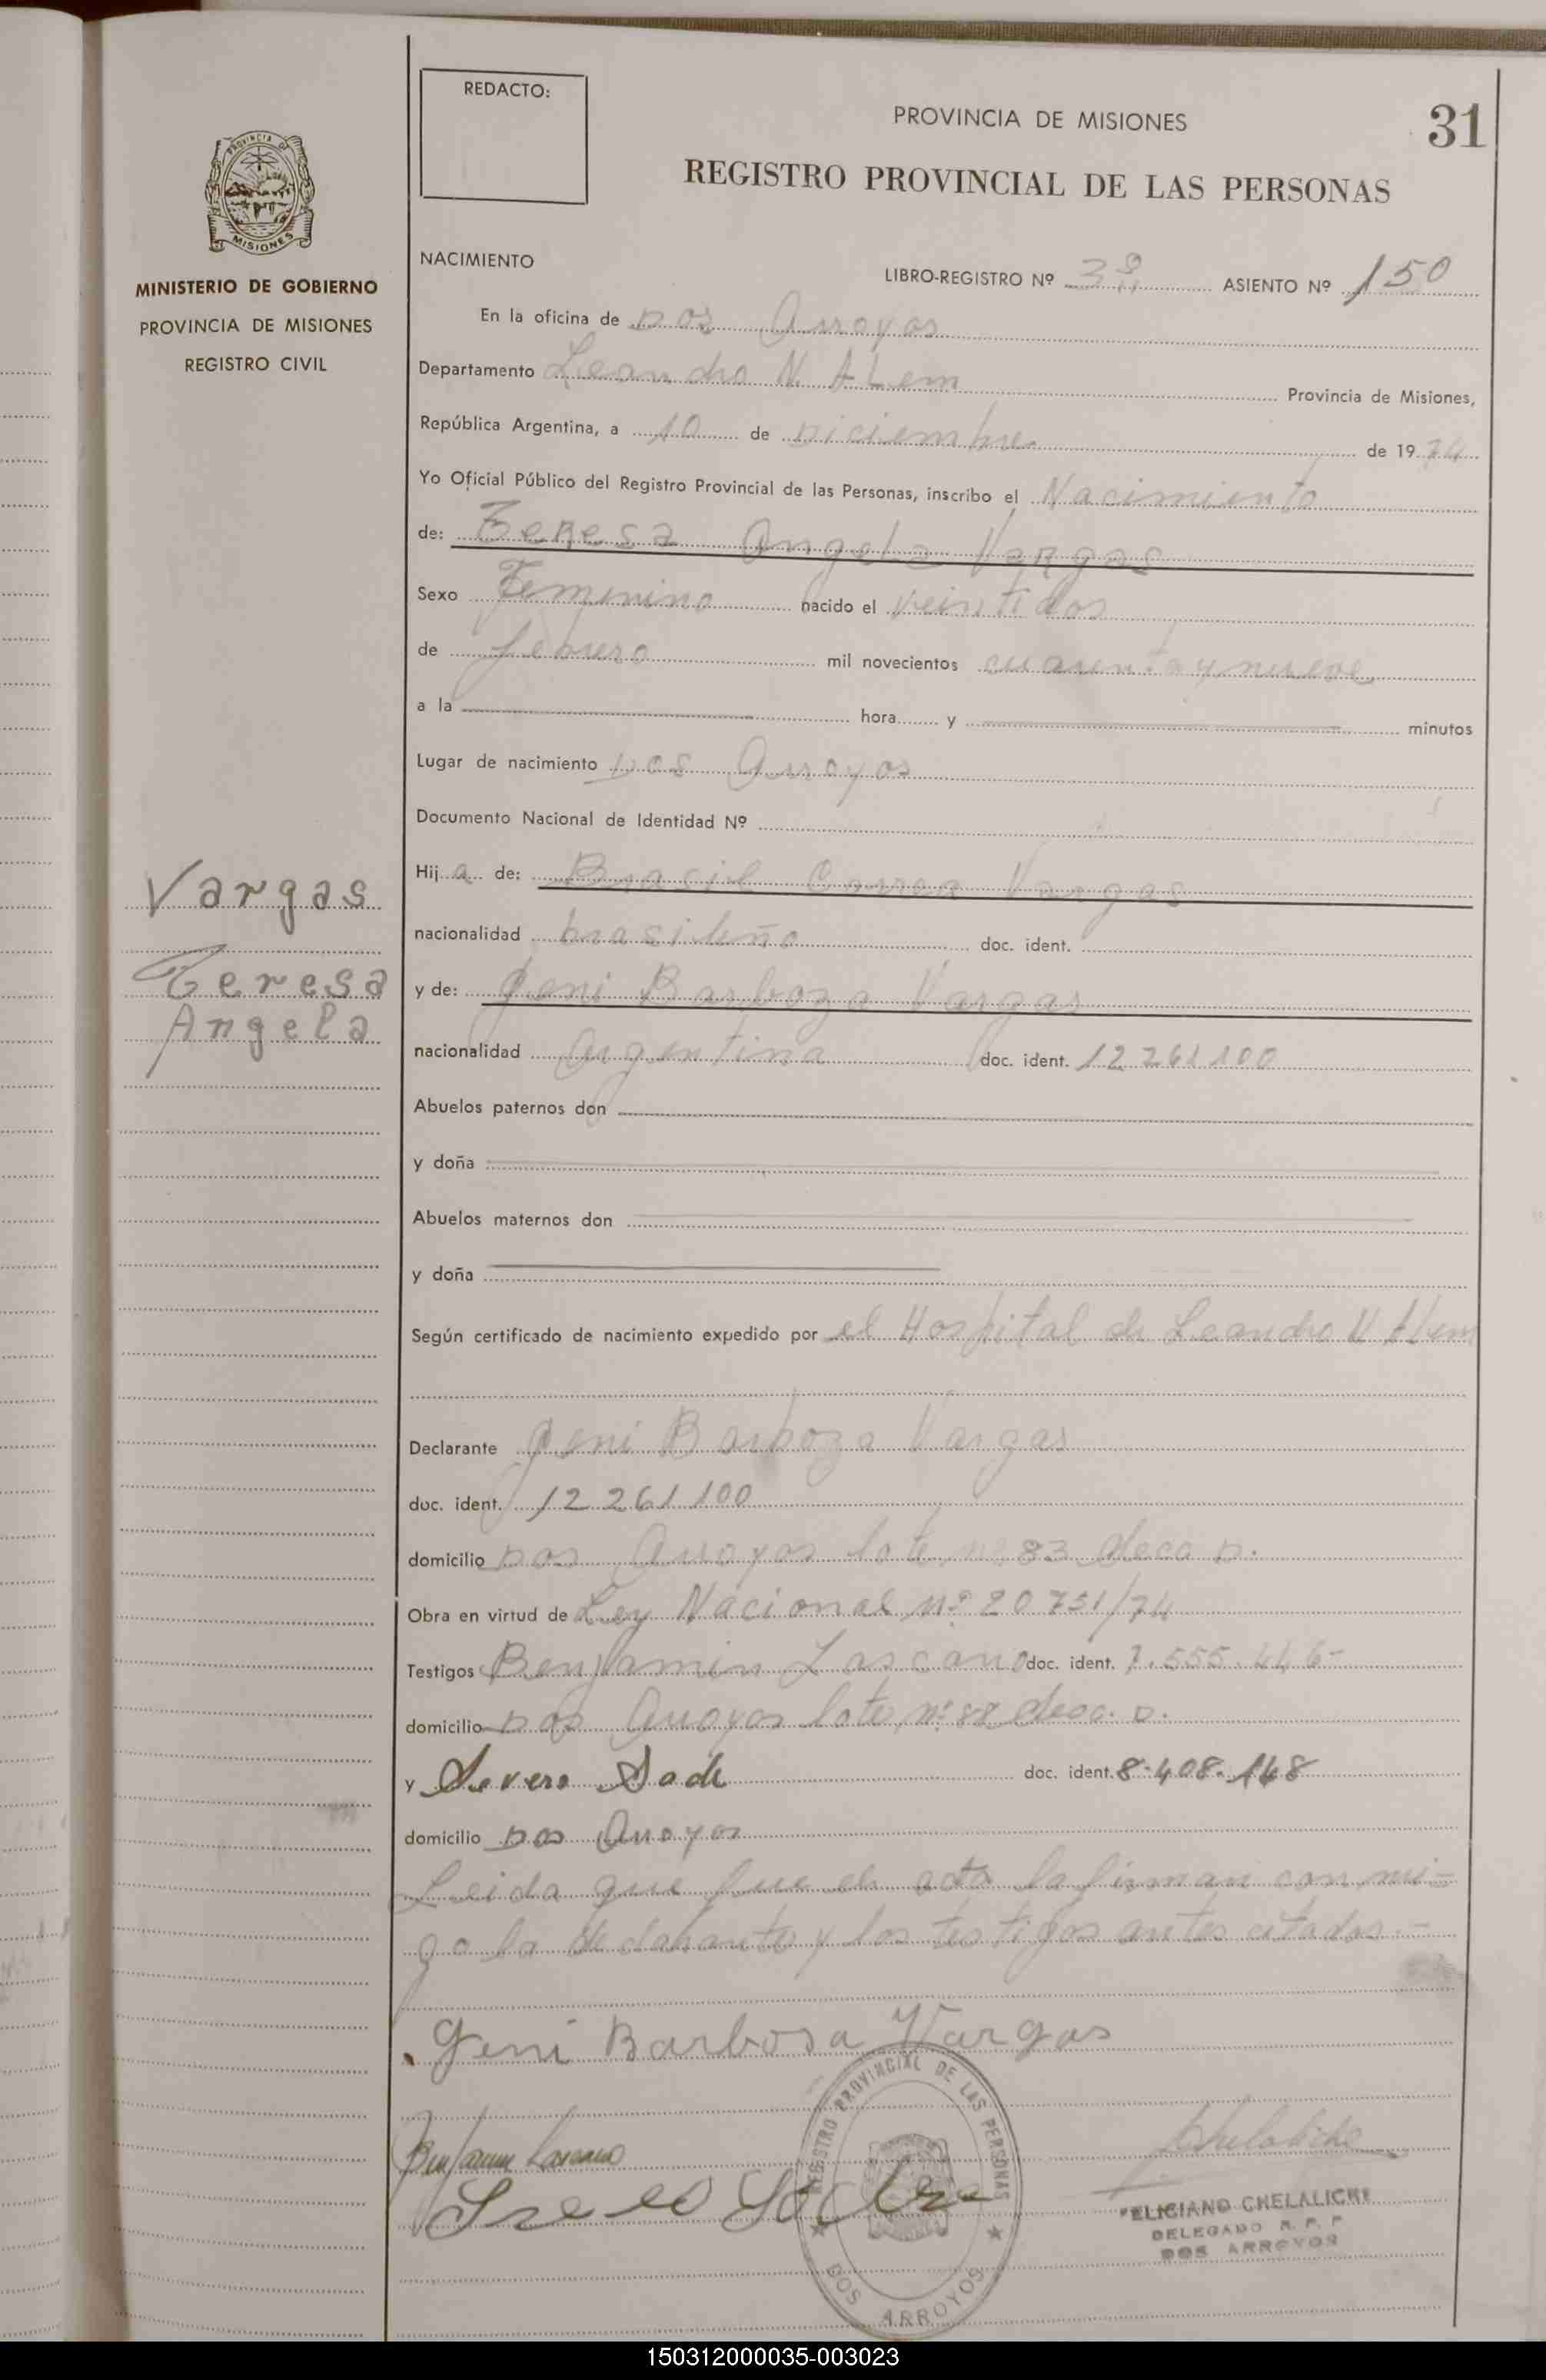 REDACTO:
PROVINCIA DE MISIONES
31
REGISTRO PROVINCIAL DE LAS PERSONAS
PROVINCIA DE
MISIONES
MINISTERIO DE GOBIERNO
PROVINCIA DE MISIONES
REGISTRO CIVIL
NACIMIENTO
LIBRO-REGISTRO Nº 3º ASIENTO Nº 150
En la oficina de Dos Arroyos
Departamento Leandro N. ALem Provincia de Misiones,
República Argentina, a 10 de Diciembre de 1974
Yo Oficial Público del Registro Provincial de las Personas, inscribo el Nacimiento
de: Teresa Angela Vargas
Sexo Femenino nacido el veintidos
de febrero mil novecientos cuarenta y nueve
a la hora y minutos
Lugar de nacimiento Dos Arroyos
Documento Nacional de Identidad Nº
Hija de: Brasil Correa Vargas
nacionalidad brasileño doc. ident.
y de: Geni Barboza Vargas
nacionalidad Argentina doc. ident. 12 261 100
Vargas
Teresa
Angela
Abuelos paternos don
y doña
Abuelos maternos don
y doña
Según certificado de nacimiento expedido por el Hospital de Leandro N Alem
Declarante Geni Barboza Vargas
doc. ident. 12 261 100
domicilio Dos Arroyos lote nº 83 secc D.
Obra en virtud de Ley Nacional nº 20 751/74
Testigos Benjamin Lascano doc. ident. 7.555.446-
domicilio Dos Arroyos lote nº 88 secc. D.
y Severo doc. ident. 8.408.148
domicilio Dos Arroyos
Leida que fue el acta la firman conmi-
go la declarante y los testigos antes citados.-
Geni Barbosa Vargas
Benjamin Lascano
REGISTRO PROVINCIAL DE LAS PERSONAS
DOS ARROYOS
FELICIANO CHELALICHE
DELEGADO R. P. P
DOS ARROYOS
150312000035-003023